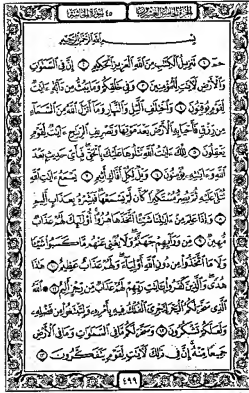 ٤٥ سورة الجاثية
بِسْمِ اللَّهِ الرَّحْمَٰنِ الرَّحِيمِ
حمٓ ۝١ تَنزِيلُ الْكِتَٰبِ مِنَ اللَّهِ الْعَزِيزِ الْحَكِيمِ ۝٢ إِنَّ فِي السَّمَٰوَٰتِ
وَالْأَرْضِ لَءَايَٰتٍ لِّلْمُؤْمِنِينَ ۝٣ وَفِي خَلْقِكُمْ وَمَا يَبُثُّ مِن دَابَّةٍ ءَايَٰتٌ
لِّقَوْمٍ يُوقِنُونَ ۝٤ وَاخْتِلَٰفِ الَّيْلِ وَالنَّهَارِ وَمَا أَنزَلَ اللَّهُ مِنَ السَّمَاءِ
مِن رِّزْقٍ فَأَحْيَا بِهِ الْأَرْضَ بَعْدَ مَوْتِهَا وَتَصْرِيفِ الرِّيَٰحِ ءَايَٰتٌ لِّقَوْمٍ
يَعْقِلُونَ ۝٥ تِلْكَ ءَايَٰتُ اللَّهِ نَتْلُوهَا عَلَيْكَ بِالْحَقِّ فَبِأَيِّ حَدِيثٍ بَعْدَ
اللَّهِ وَءَايَٰتِهِ يُؤْمِنُونَ ۝٦ وَيْلٌ لِّكُلِّ أَفَّاكٍ أَثِيمٍ ۝٧ يَسْمَعُ ءَايَٰتِ اللَّهِ
تُتْلَىٰ عَلَيْهِ ثُمَّ يُصِرُّ مُسْتَكْبِرًا كَأَن لَّمْ يَسْمَعْهَا فَبَشِّرْهُ بِعَذَابٍ أَلِيمٍ
۝٨ وَإِذَا عَلِمَ مِنْ ءَايَٰتِنَا شَيْئًا اتَّخَذَهَا هُزُوًا أُولَٰئِكَ لَهُمْ عَذَابٌ
مُّهِينٌ ۝٩ مِّن وَرَائِهِمْ جَهَنَّمُ وَلَا يُغْنِي عَنْهُم مَّا كَسَبُوا شَيْئًا
وَلَا مَا اتَّخَذُوا مِن دُونِ اللَّهِ أَوْلِيَاءَ وَلَهُمْ عَذَابٌ عَظِيمٌ ۝١٠ هَٰذَا
هُدًى وَالَّذِينَ كَفَرُوا بِءَايَٰتِ رَبِّهِمْ لَهُمْ عَذَابٌ مِّن رِّجْزٍ أَلِيمٌ ۝١١ اللَّهُ
الَّذِي سَخَّرَ لَكُمُ الْبَحْرَ لِتَجْرِيَ الْفُلْكُ فِيهِ بِأَمْرِهِ وَلِتَبْتَغُوا مِن فَضْلِهِ
وَلَعَلَّكُمْ تَشْكُرُونَ ۝١٢ وَسَخَّرَ لَكُم مَّا فِي السَّمَٰوَٰتِ وَمَا فِي الْأَرْضِ
جَمِيعًا مِّنْهُ إِنَّ فِي ذَٰلِكَ لَءَايَٰتٍ لِّقَوْمٍ يَتَفَكَّرُونَ ۝١٣
٤٩٩